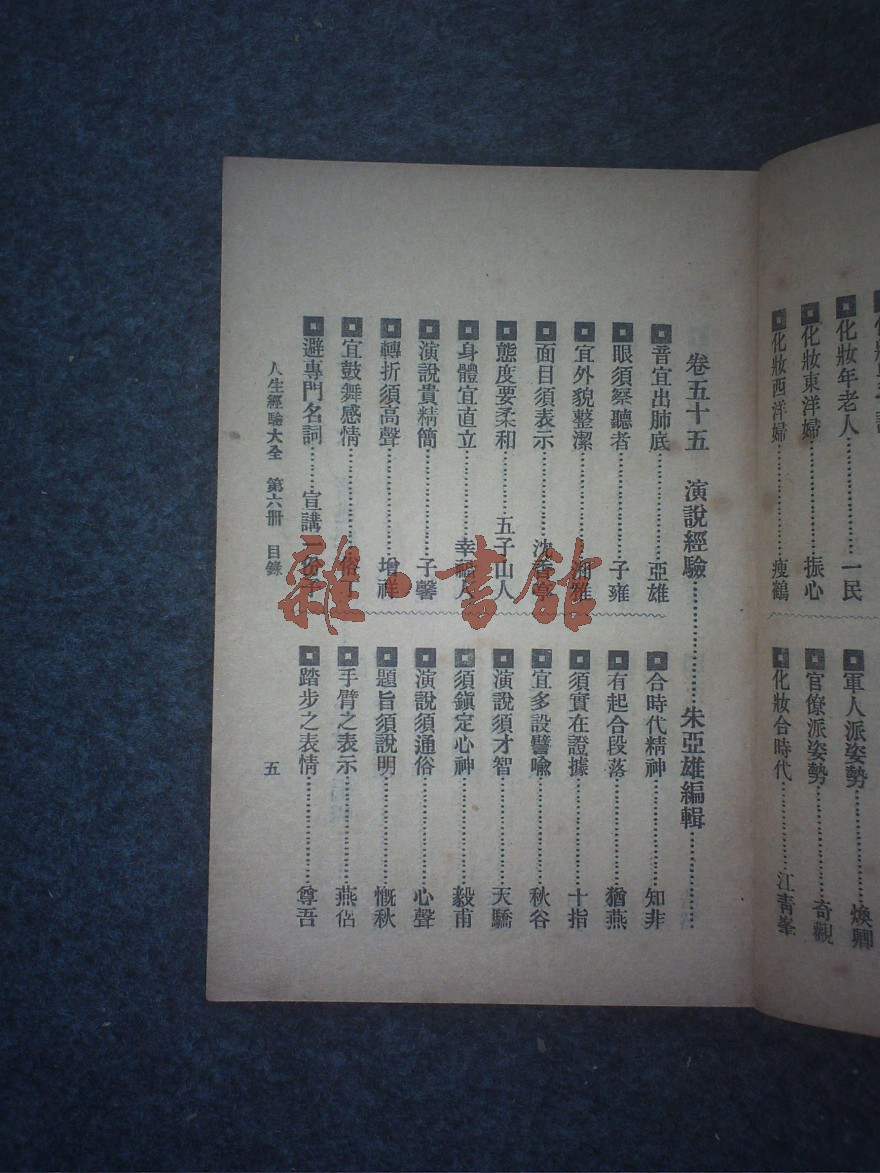 化妝年老人……一民
化妝東洋婦……振心
化妝西洋婦……瘦鶴
軍人派姿勢……煥卿
官僚派姿勢……奇觀
化妝合時代……江靑峯
卷五十五 演說經驗……朱亞雄編輯……
音宜出肺底……亞雄
眼須察聽者……子雍
宜外貌整潔……雅
面目須表示……沈香亭
態度要柔和……五子山人
身體宜直立……幸福人
演說貴精簡……子馨
轉折須高聲……增祥
宜鼓舞感情……俗
避專門名詞……宣講一份子
合時代精神……知非
有起合段落……猶燕
須實在證據……十指
宜多設譬喩……秋谷
演說須才智……天驕
須鎭定心神……毅甫
演說須通俗……心聲
題旨須說明……慨秋
手臂之表示……燕侶
踏步之表情……尊吾
人生經驗大全 第六册 目錄 五
雜·書館